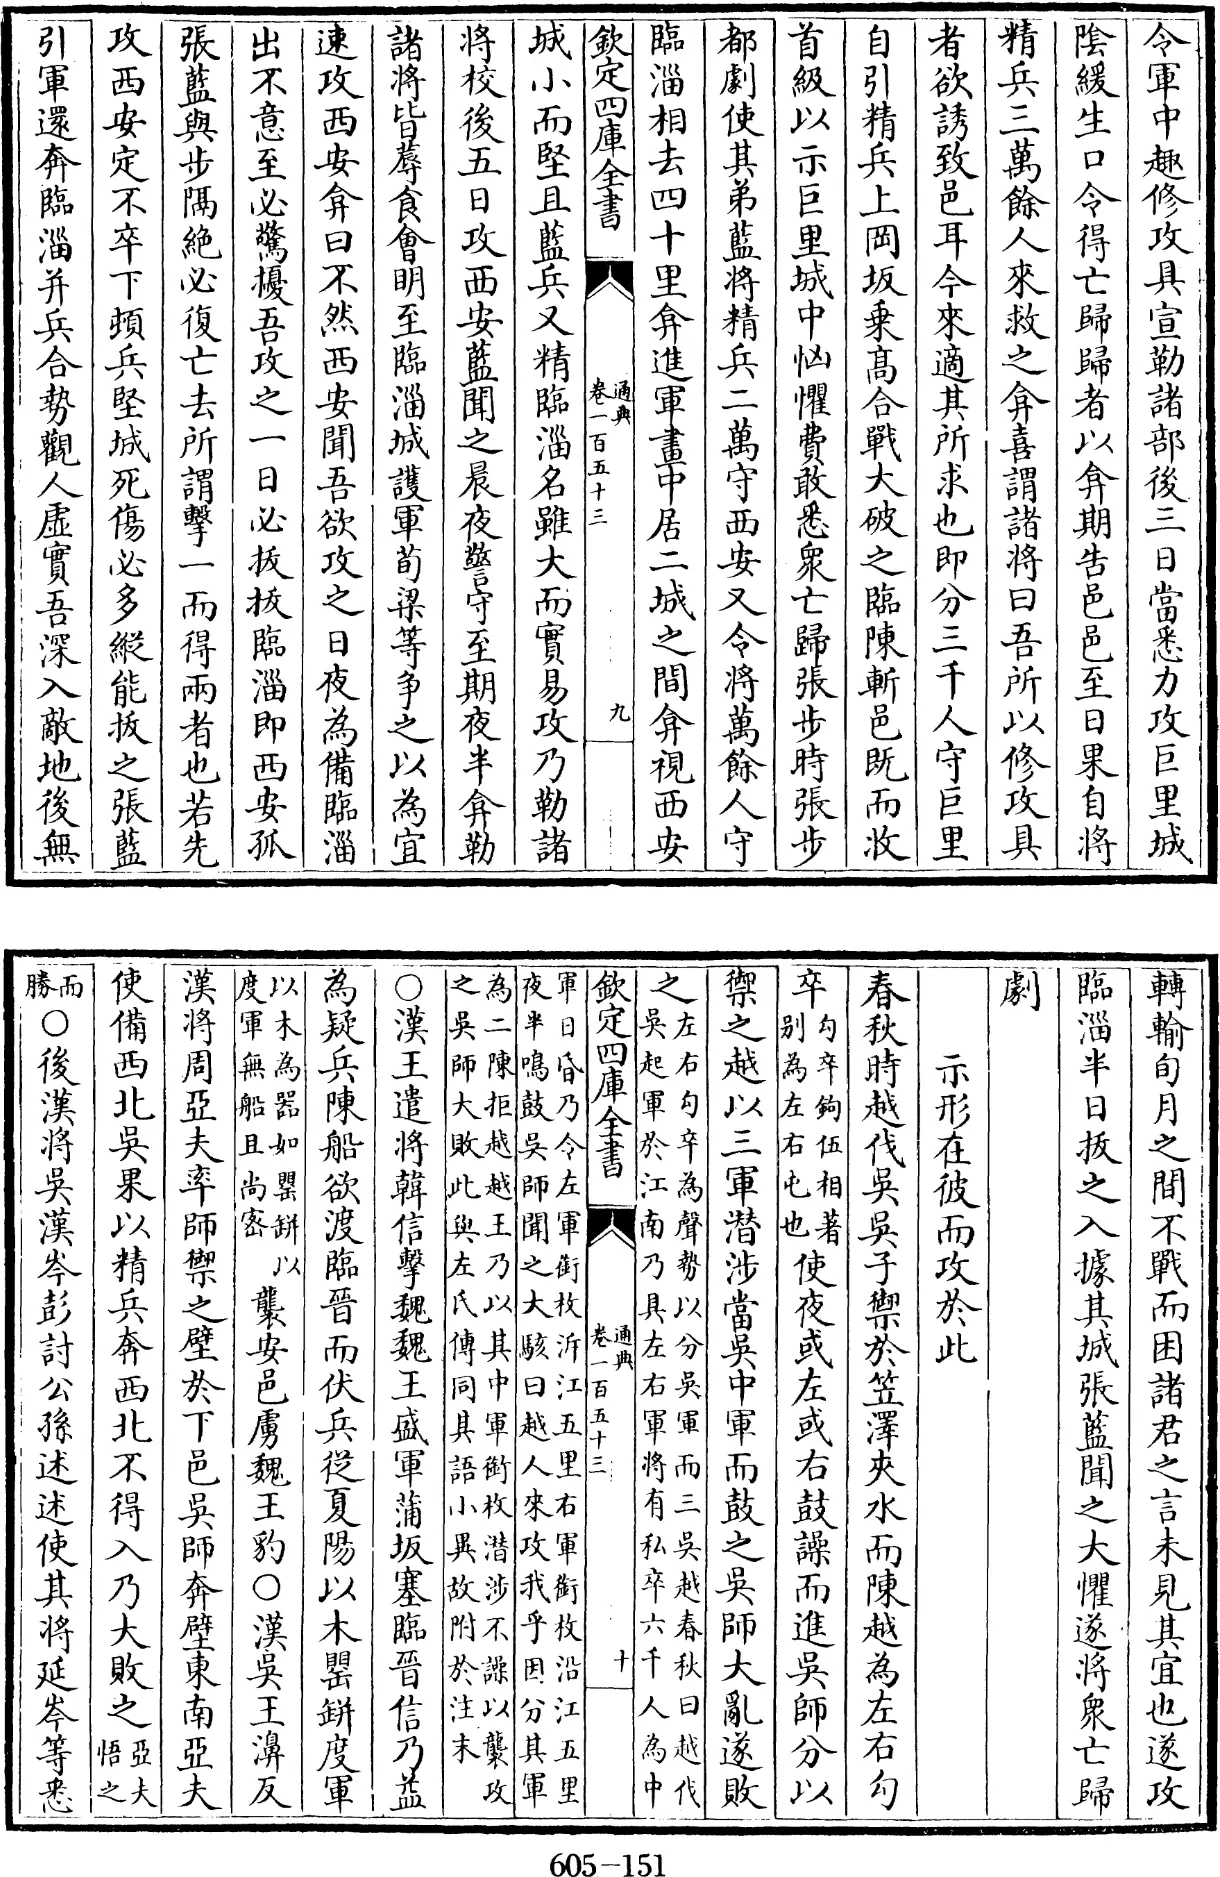 令軍中趣修攻具宣勒諸部後三日當悉力攻巨里城
陰緩生口令得亡歸歸者以弇期告邑邑至日果自將
精兵三萬餘人來救之弇喜謂諸將曰吾所以修攻具
者欲誘致邑耳今來適其所求也即分三千人守巨里
自引精兵上岡坂乗髙合戰大破之臨陳斬邑既而收
首級以示巨里城中恟懼費敢悉衆亡歸張步時張步
都劇使其弟藍將精兵二萬守西安又令將萬餘人守
臨淄相去四十里弇進軍畫中居二城之間弇視西安
欽定四庫全書
通典
卷一百五十三
九
城小而堅且藍兵又精臨淄名雖大而實易攻乃勒諸
將校後五日攻西安藍聞之晨夜警守至期夜半弇勒
諸將皆蓐食會明至臨淄城護軍荀梁等争之以為宜
速攻西安弇曰不然西安聞吾欲攻之日夜為備臨淄
出不意至必驚擾吾攻之一日必抜抜臨淄即西安孤
張藍與步隅絶必復亡去所謂擊一而得兩者也若先
攻西安定不卒下頓兵堅城死傷必多縱能抜之張藍
引軍還奔臨淄并兵合勢觀人虛實吾深入敵地後無
轉輸旬月之間不戰而困諸君之言未見其宜也遂攻
臨淄半日抜之入據其城張藍聞之大懼遂將衆亡歸
劇
示形在彼而攻於此
春秋時越伐吳吳子禦於笠澤夾水而陳越為左右勾
卒勾卒鉤伍相著
别為左右屯也使夜或左或右鼓譟而進吳師分以
禦之越以三軍潜涉當吳中軍而鼓之吳師大亂遂敗
之左右勾卒為聲勢以分吳軍而三吳越春秋曰越伐
吳起軍於江南乃具左右軍將有私卒六千人為中
欽定四庫全書
通典
卷一百五十三
十
軍日昏乃令左軍銜枚泝江五里右軍銜枚沿江五里
夜半鳴鼓吳師聞之大駭曰越人來攻我乎因分其軍
為二陳拒越越王乃以其中軍銜枚潜涉不譟以襲攻
之吳師大敗此與左氏傳同其語小異故附於注末
○漢王遣將韓信擊魏魏王盛軍蒲坂塞臨晉信乃益
為疑兵陳船欲渡臨晉而伏兵從夏陽以木罌缾度軍
以木為器如罌缾以
度軍無船且尚密襲安邑虜魏王豹○漢吳王濞反
漢將周亞夫率師禦之壁於下邑吳師奔壁東南亞夫
使備西北吳果以精兵奔西北不得入乃大敗之亞夫
悟之
而
勝○後漢將吳漢岑彭討公孫述述使其將延岑等悉
605-151